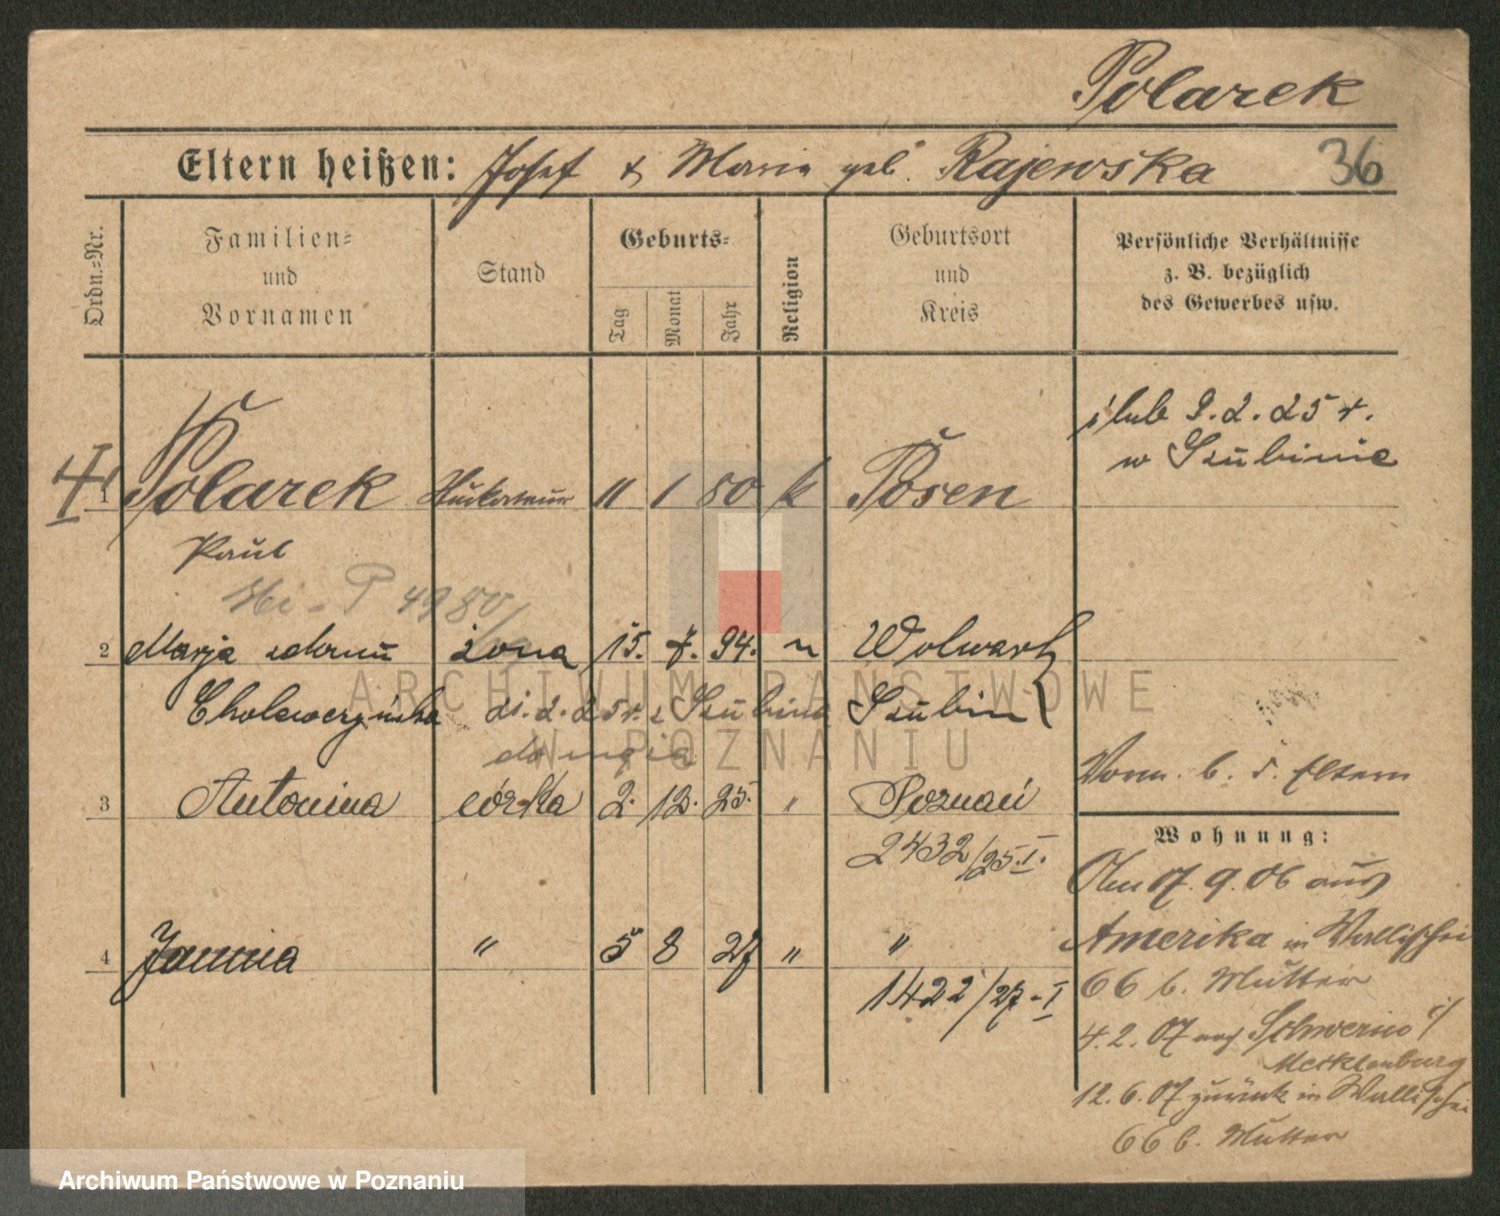 Polarek
Eltern heißen: Josef & Maria geb. Rajewska 36
Ordn.-Nr.
Familien-
und
Vornamen
Stand
Geburts-
Tag
Monat
Jahr
Religion
Geburtsort
und
Kreis
Persönliche Verhältnisse
z. B. bezüglich
des Gewerbes usw.
ślub 9.2.25 r.
w Szubinie
I 1 Polarek Stuckateur 11 1 80 k Posen
Paul
2 Marja żona 15. 7. 94. Wolwark
Cholewczyńska 21.2.25 r. z Szubina Szubin
3 Antonina córka 2. 12. 25. " Poznań
2432/25.I.
4 Janina " 5 8 27 " "
1422/27-I
Vorm. b. d. Eltern
Wohnung:
9.06 aus
Amerika in Wallischei
66 b. Mutter
4.2.07 nach Schwerin i/
Mecklenburg
12.6.07 zurück in Wallischei
66 b. Mutter
ARCHIWUM PAŃSTWOWE
W POZNANIU
Archiwum Państwowe w Poznaniu